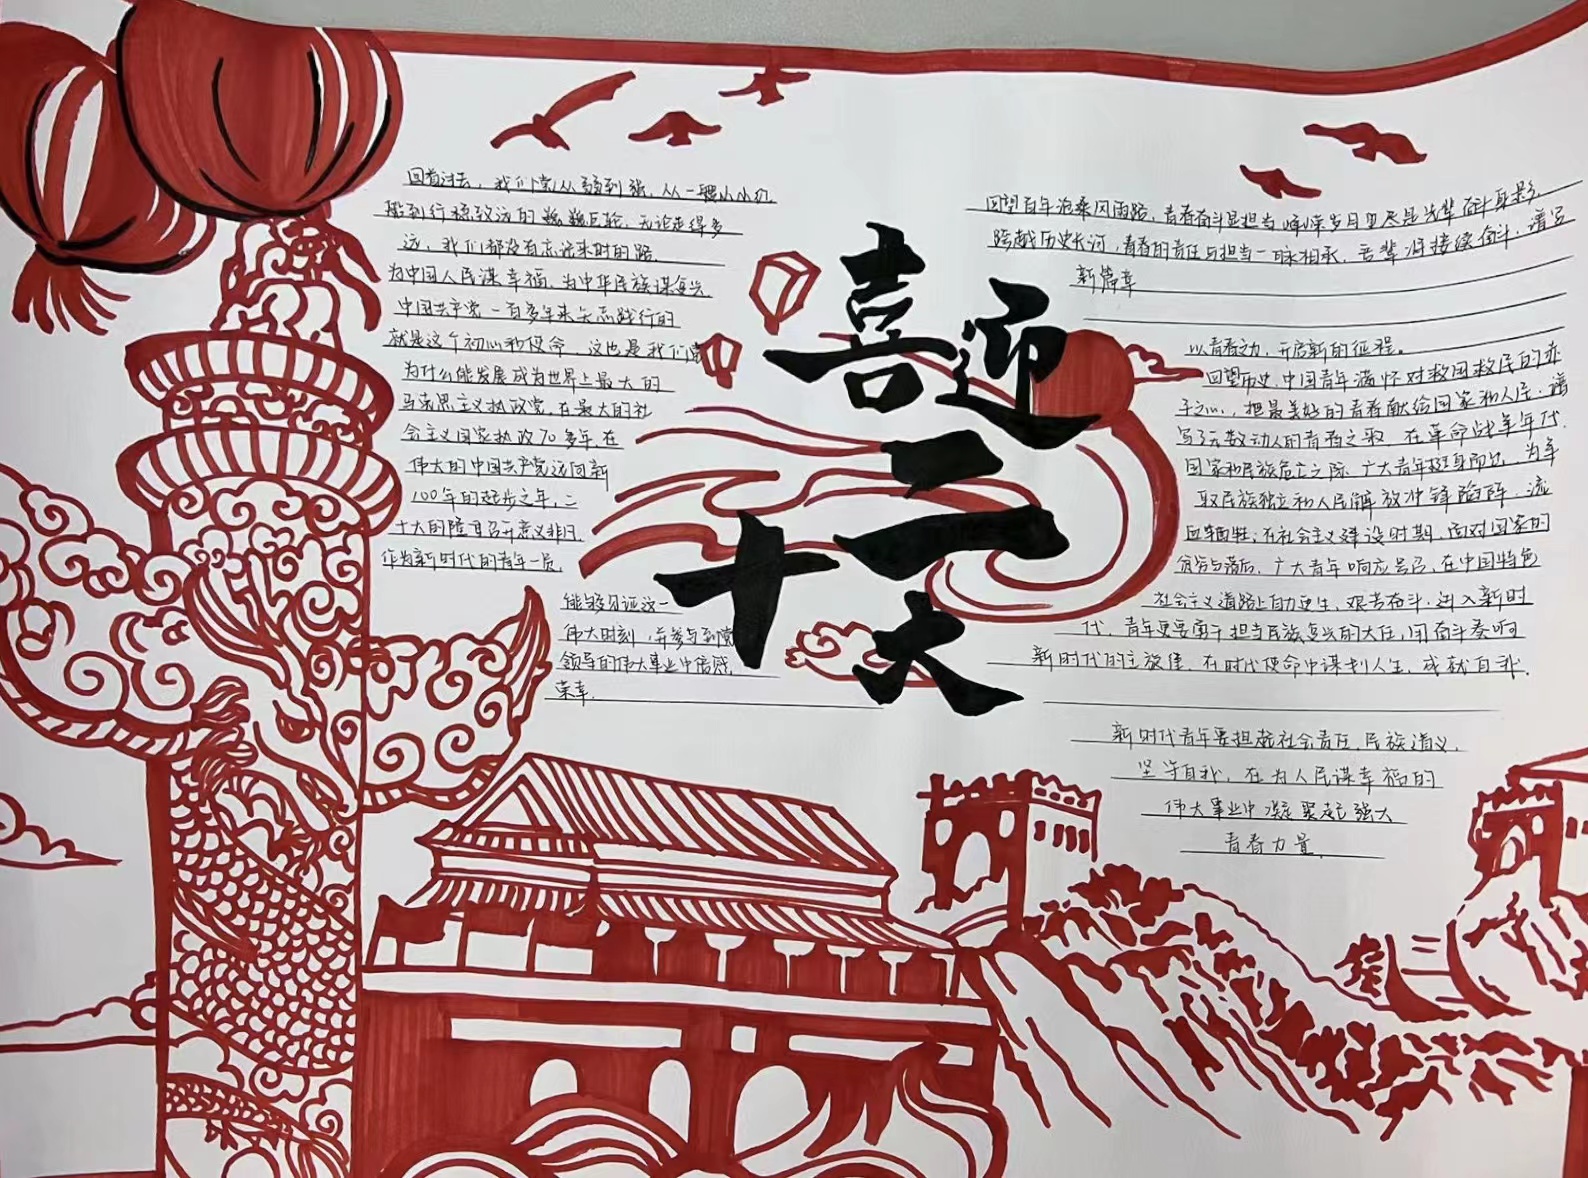 回首过去，我们党从弱到强，从一艘小小红
船到行稳致远的巍巍巨轮，无论走得多
远，我们都没有忘记来时的路。
为中国人民谋幸福，为中华民族谋复兴
中国共产党一百多年来矢志践行的
就是这个初心和使命。这也是我们党
为什么能发展成为世界上最大的
马克思主义执政党，在最大的社
会主义国家执政70多年，在
伟大的中国共产党迈向新
100年的起步之年，二
十大的隆重召开意义非凡
作为新时代的青年一员，
能够见证这一
伟大时刻，并参与到党
领导的伟大事业中倍感
荣幸.
喜迎
二十大
回望百年沧桑风雨路，青春奋斗显担当，峥嵘岁月里尽是先辈奋斗身影，
跨越历史长河，青春的责任与担当一脉相承，吾辈将接续奋斗，谱写
新篇章
以青春之力，开启新的征程。
回望历史，中国青年满怀对救国救民的赤
子之心，把最美好的青春献给国家和人民，谱
写了无数动人的青春之歌，在革命战争年代，
国家和民族危亡之际，广大青年挺身而出，为争
取民族独立和人民解放冲锋陷阵，流
血牺牲；在社会主义建设时期，面对国家的
贫穷与落后，广大青年响应号召，在中国特色
社会主义道路上自力更生，艰苦奋斗，进入新时
代，青年更要勇于担当民族复兴的大任，用奋斗奏响
新时代的主旋律，在时代使命中谋划人生，成就自我.
新时代青年要担起社会责任、民族道义，
坚守自我，在为人民谋幸福的
伟大事业中凝聚起强大
青春力量.